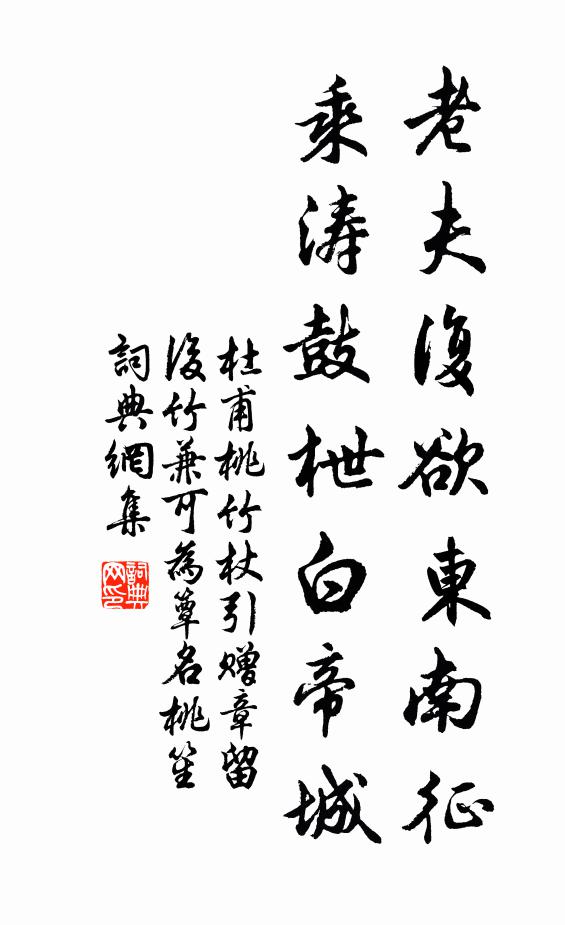 老夫復欲東南征
乘濤鼓枻白帝城
杜甫桃竹杖引贈章留
後竹兼可為簟名桃笙
詞典網集
詞典
网印